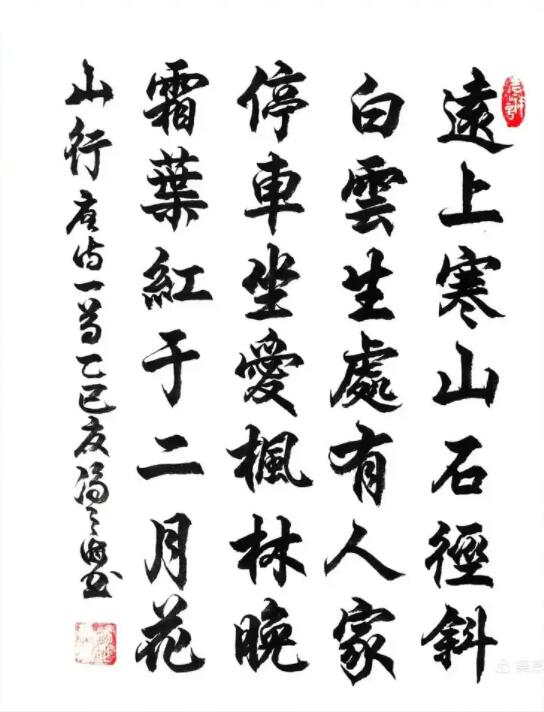 遠上寒山石徑斜
白雲生處有人家
停車坐愛楓林晚
霜葉紅于二月花
山行 唐诗一首 乙巳夏